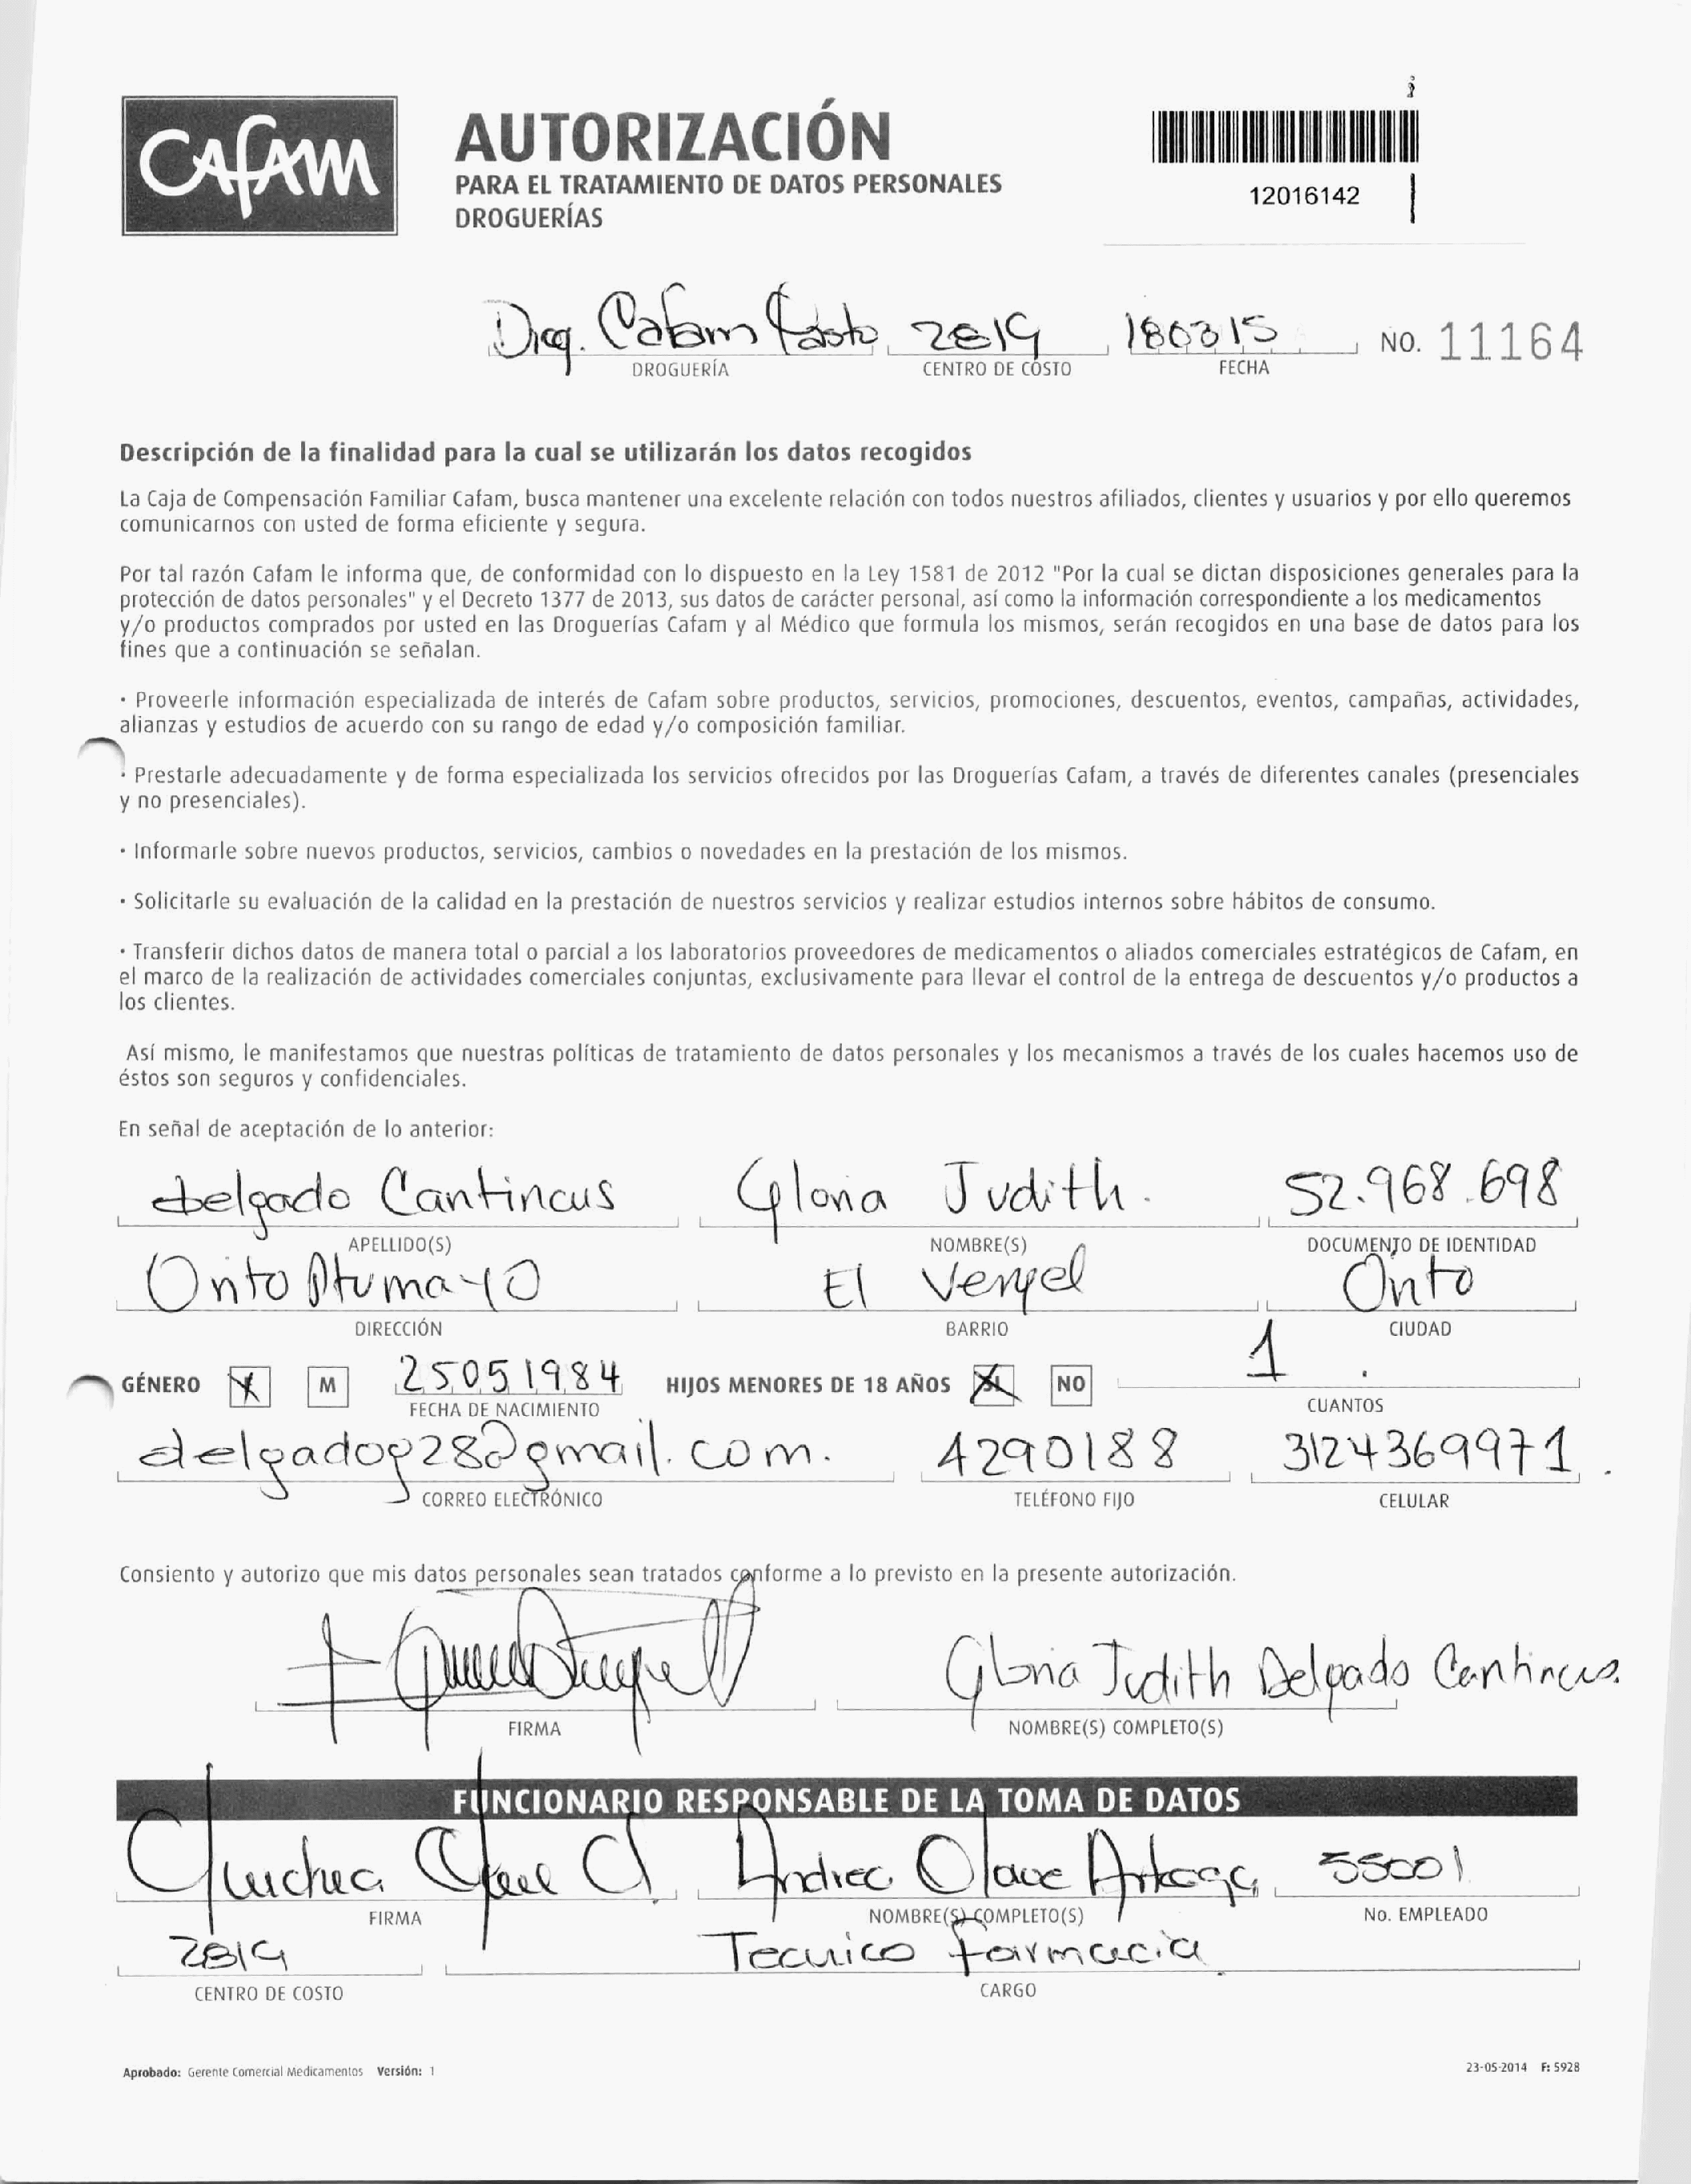 CAFAM
AUTORIZACIÓN
PARA EL TRATAMIENTO DE DATOS PERSONALES
DROGUERÍAS
12016142
Drog. Cafam Pasto 2819 180315 NO. 11164
DROGUERÍA CENTRO DE COSTO FECHA
Descripción de la finalidad para la cual se utilizarán los datos recogidos
La Caja de Compensación Familiar Cafam, busca mantener una excelente relación con todos nuestros afiliados, clientes y usuarios y por ello queremos
comunicarnos con usted de forma eficiente y segura.
Por tal razón Cafam le informa que, de conformidad con lo dispuesto en la Ley 1581 de 2012 "Por la cual se dictan disposiciones generales para la
protección de datos personales" y el Decreto 1377 de 2013, sus datos de carácter personal, así como la información correspondiente a los medicamentos
y/o productos comprados por usted en las Droguerías Cafam y al Médico que formula los mismos, serán recogidos en una base de datos para los
fines que a continuación se señalan.
· Proveerle información especializada de interés de Cafam sobre productos, servicios, promociones, descuentos, eventos, campañas, actividades,
alianzas y estudios de acuerdo con su rango de edad y/o composición familiar.
· Prestarle adecuadamente y de forma especializada los servicios ofrecidos por las Droguerías Cafam, a través de diferentes canales (presenciales
y no presenciales).
· Informarle sobre nuevos productos, servicios, cambios o novedades en la prestación de los mismos.
· Solicitarle su evaluación de la calidad en la prestación de nuestros servicios y realizar estudios internos sobre hábitos de consumo.
· Transferir dichos datos de manera total o parcial a los laboratorios proveedores de medicamentos o aliados comerciales estratégicos de Cafam, en
el marco de la realización de actividades comerciales conjuntas, exclusivamente para llevar el control de la entrega de descuentos y/o productos a
los clientes.
Así mismo, le manifestamos que nuestras políticas de tratamiento de datos personales y los mecanismos a través de los cuales hacemos uso de
éstos son seguros y confidenciales.
En señal de aceptación de lo anterior:
delgado Cantincus Gloria Judith. 52.968.698
APELLIDO(S) NOMBRE(S) DOCUMENTO DE IDENTIDAD
Orito Ptumayo El Vergel Orito
DIRECCIÓN BARRIO CIUDAD
GÉNERO X M 25051984 HIJOS MENORES DE 18 AÑOS SI NO 1
FECHA DE NACIMIENTO CUANTOS
delgadog28@gmail.com. 4290188 3124369971.
CORREO ELECTRÓNICO TELÉFONO FIJO CELULAR
Consiento y autorizo que mis datos personales sean tratados conforme a lo previsto en la presente autorización.
Gloria Judith Delgado Cantincus.
FIRMA NOMBRE(S) COMPLETO(S)
FUNCIONARIO RESPONSABLE DE LA TOMA DE DATOS
Andrea Olave Artoaga 55001
FIRMA NOMBRE(S) COMPLETO(S) No. EMPLEADO
2819 Tecnico farmacia
CENTRO DE COSTO CARGO
Aprobado: Gerente Comercial Medicamentos Versión: 1 23-05-2014 F: 5928